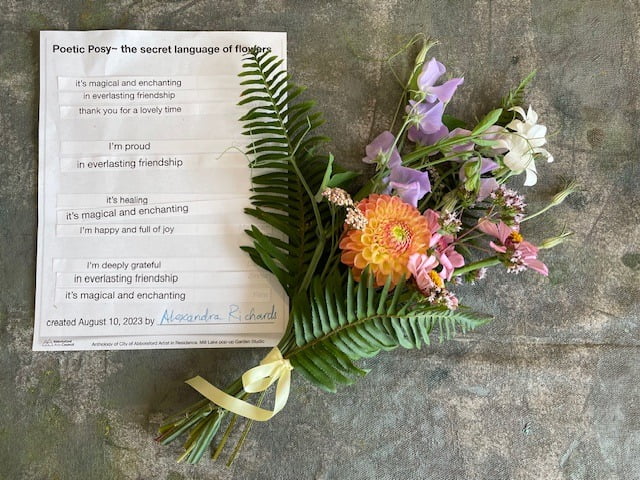 Poetic Posy~ the secret language of flowers
it's magical and enchanting
in everlasting friendship
thank you for a lovely time
I'm proud
in everlasting friendship
it's healing
it's magical and enchanting
I'm happy and full of joy
I'm deeply grateful
in everlasting friendship
it's magical and enchanting
created August 10, 2023 by Alexandra Richards
Abbotsford Arts Council
Anthology of City of Abbotsford Artist in Residence, Mill Lake pop-up Garden Studio